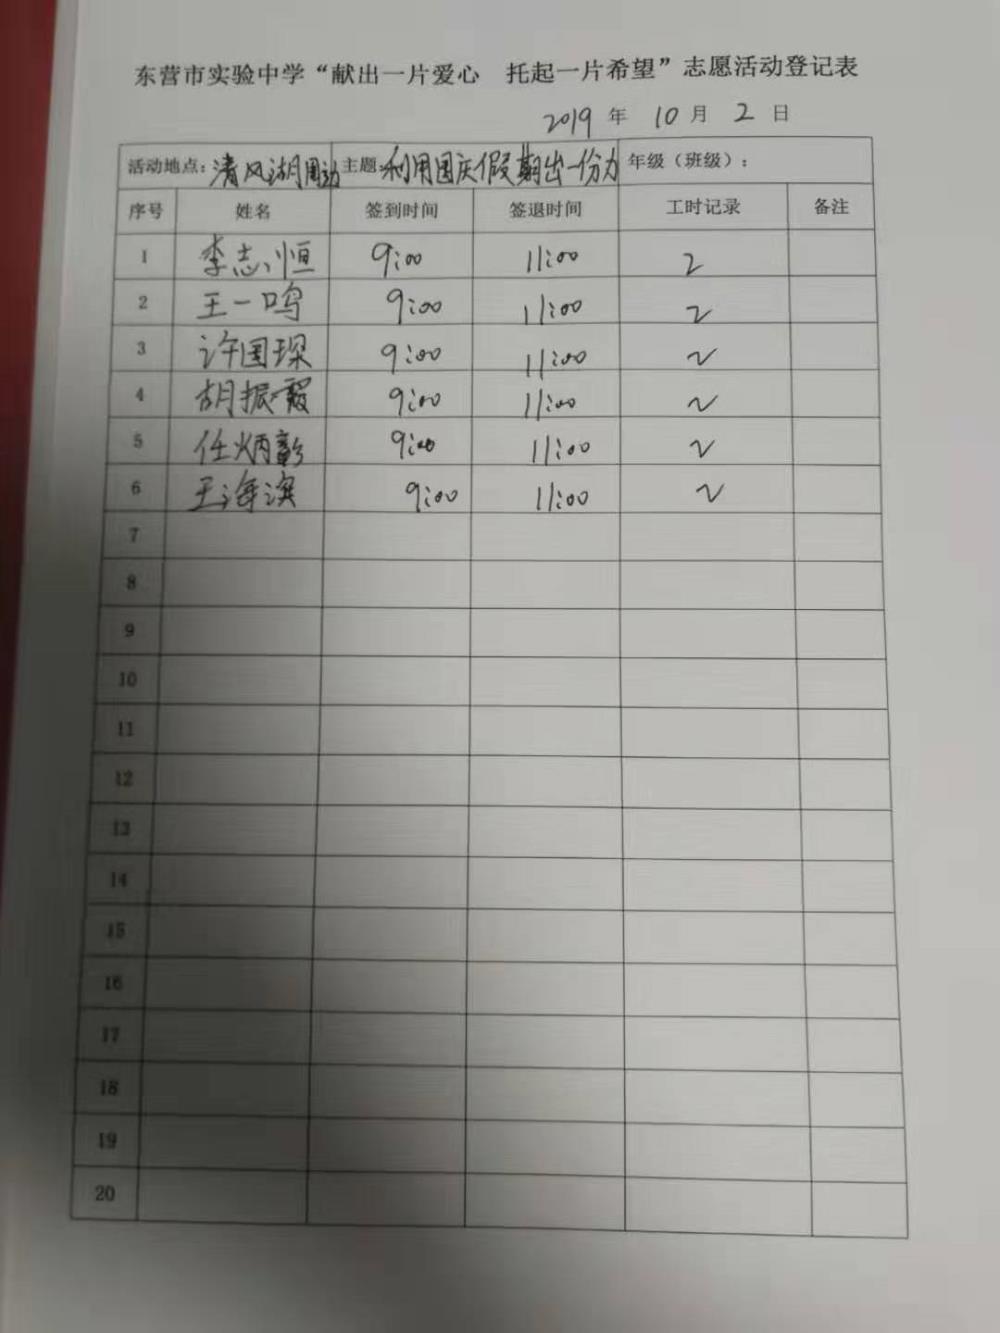 东营市实验中学“献出一片爱心 托起一片希望”志愿活动登记表
2019 年 10 月 2 日
活动地点: 清风湖周边 主题: 利用国庆假期出一份力 年级（班级）:
序号 姓名 签到时间 签退时间 工时记录 备注
1 李志恒 9:00 11:00 2
2 王一鸣 9:00 11:00 2
3 许国琛 9:00 11:00 2
4 胡振霞 9:00 11:00 2
5 任炳彰 9:00 11:00 2
6 王海滨 9:00 11:00 2
7
8
9
10
11
12
13
14
15
16
17
18
19
20